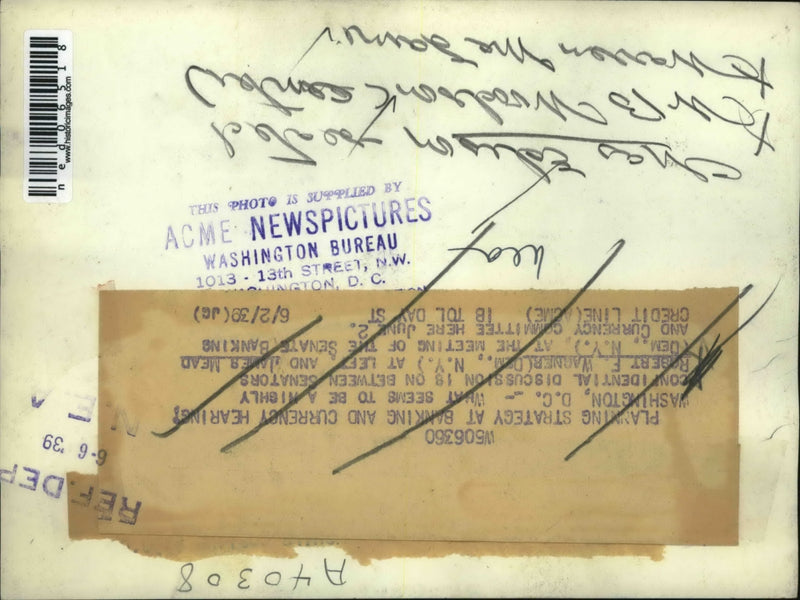 A40308
REF. DEP
6-6 '39
N E A
W506360
PLANNING STRATEGY AT BANKING AND CURRENCY HEARING!
WASHINGTON, D.C. -- WHAT SEEMS TO BE A HIGHLY
CONFIDENTIAL DISCUSSION IS ON BETWEEN SENATORS
ROBERT F. WAGNER(DEM., N.Y.) AT LEFT, AND JAMES MEAD
(DEM., N.Y.), AT THE MEETING OF THE SENATE BANKING
AND CURRENCY COMMITTEE HERE JUNE 2.
CREDIT LINE(ACME) 18 TOL DAY ST 6/2/39(JG)
THIS PHOTO IS SUPPLIED BY
ACME NEWSPICTURES
WASHINGTON BUREAU
1013 - 13th STREET, N.W.
WASHINGTON, D. C.
Chas Edison seated
to Warren
www.historicimages.com
ned06518